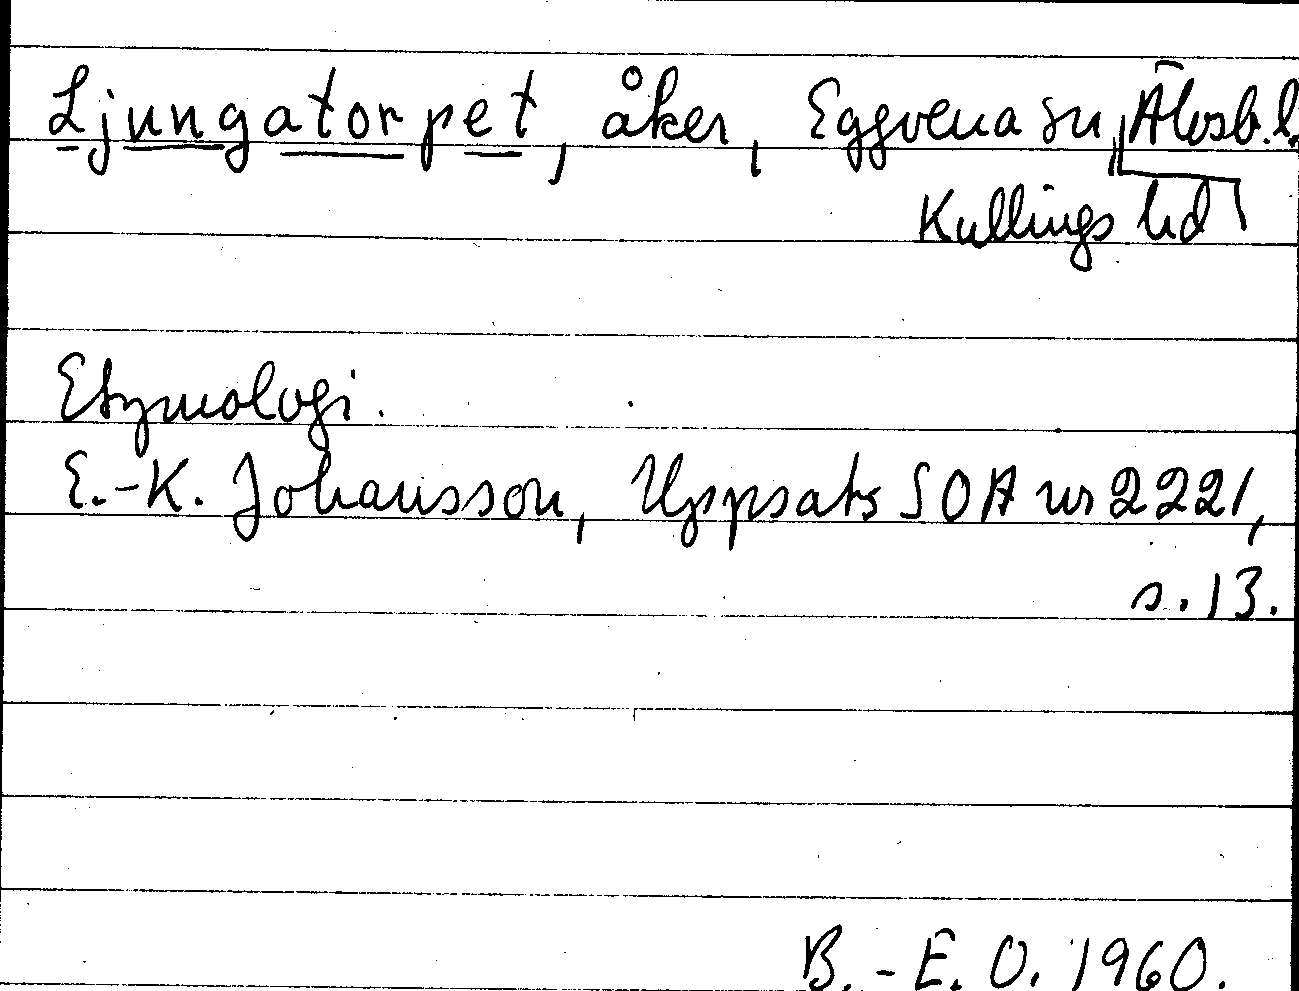 Ljungatorpet, åker, Eggvena sn, Älvsb. l.
Kullings hd
Etymologi.
E.-K. Johansson, Uppsats SOA nr 2221,
s. 13.
B.-E. O. 1960.